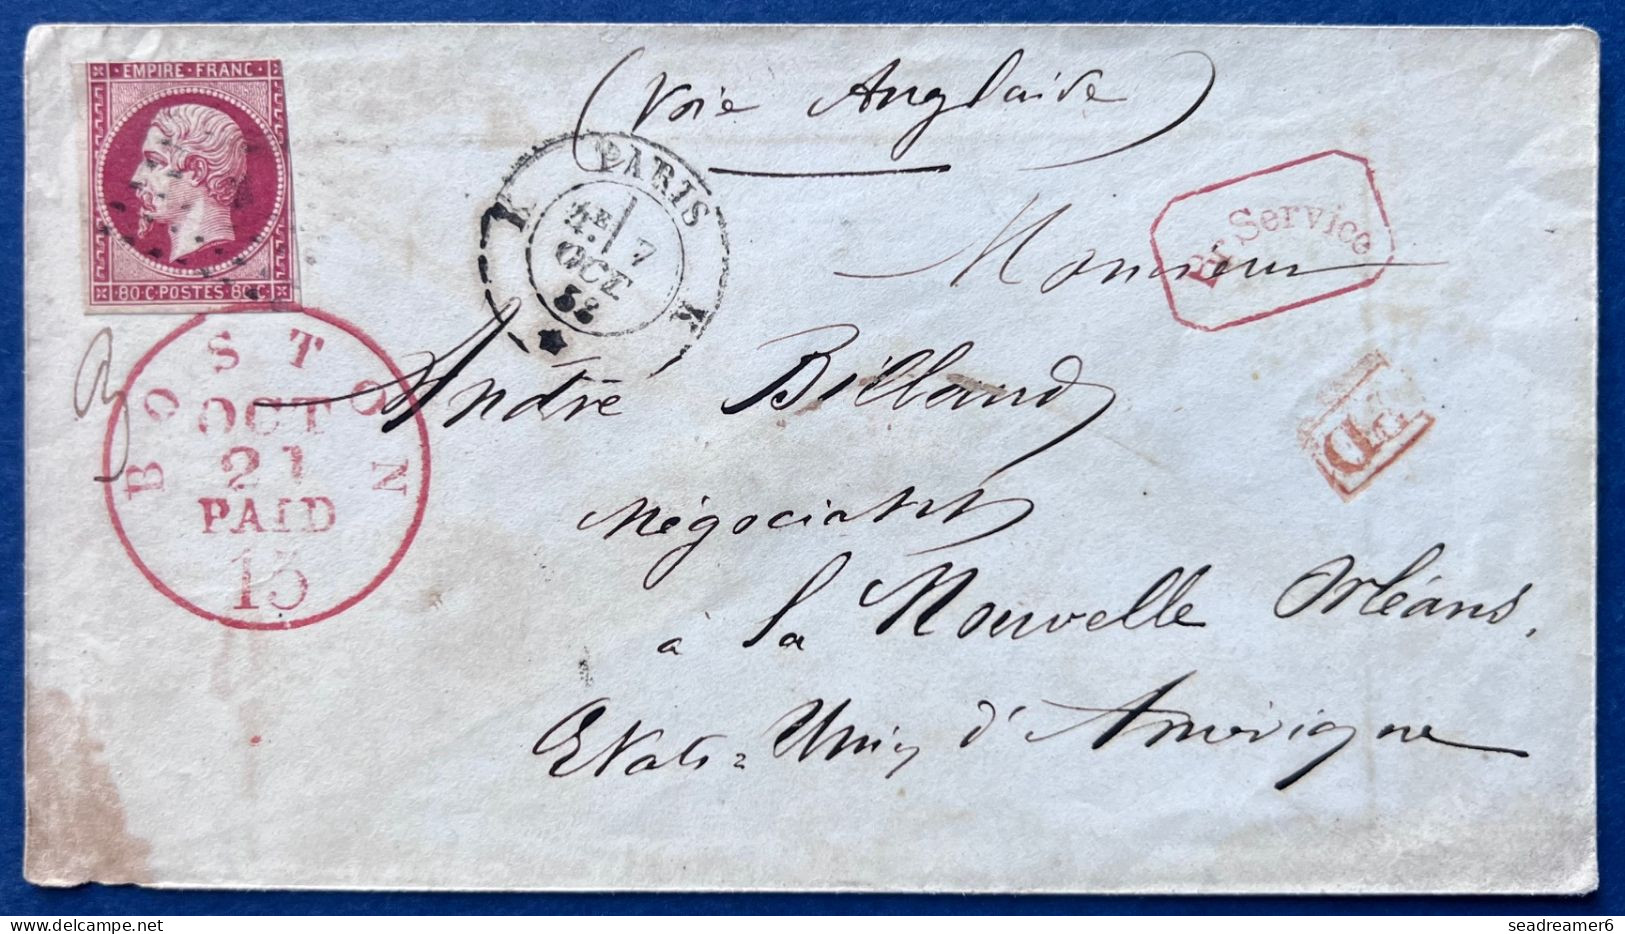 EMPIRE · FRANC ·
· 80 · C · POSTES · 80 · C ·
(Voie Anglaise)
PARIS
K K
4E 7
OCT.
58
Br Service
Monsieur
André Billaud
PD
BOSTON
OCT
21
PAID
15
Négociant
à la Nouvelle Orléans.
Etats=Unis d'Amérique
seadreamer6 @ Delcampe.net